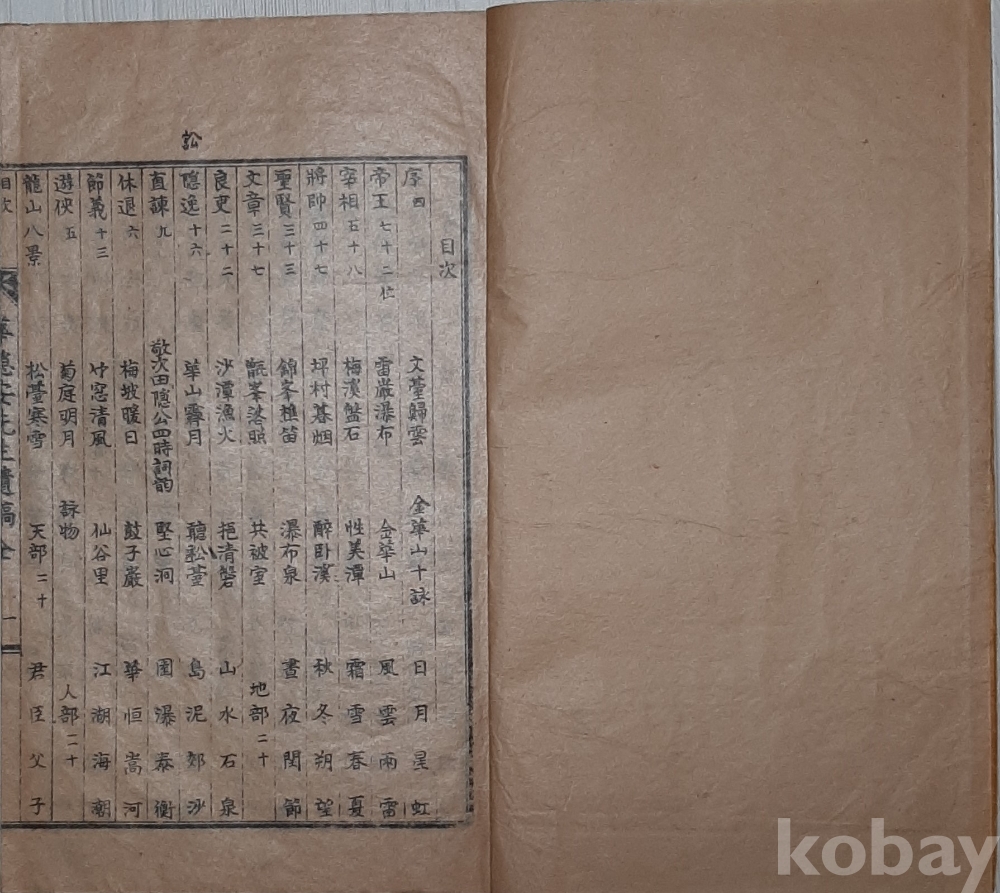 訟
目次
序四 文臺歸雲 金華山十詠 日月星虹
帝王七十二位 雷巖瀑布 金華山 風雲雨雷
宰相五十八 梅溪盤石 性美潭 霜雪春夏
將帥四十七 坪村暮烟 醉臥溪 秋冬朔望
聖賢三十三 錦峯樵笛 瀑布泉 晝夜閏節
文章三十七 甑峯落照 共被室 地部二十
良吏二十二 沙潭漁火 挹清磐 山水石泉
隱逸十六 華山霽月 聽松臺 島泥郊沙
直諫九 敬次田隱公四時詞韵 堅心洞 園瀑泰衡
休退六 梅坡暖日 鼓子巖 華恒嵩河
節義十三 竹窓清風 仙谷里 江湖海潮
遊俠五 菊庭明月 詠物 人部二十
龍山八景 松臺寒雪 天部二十 君臣父子
目次 先生遺稿全 一
kobay